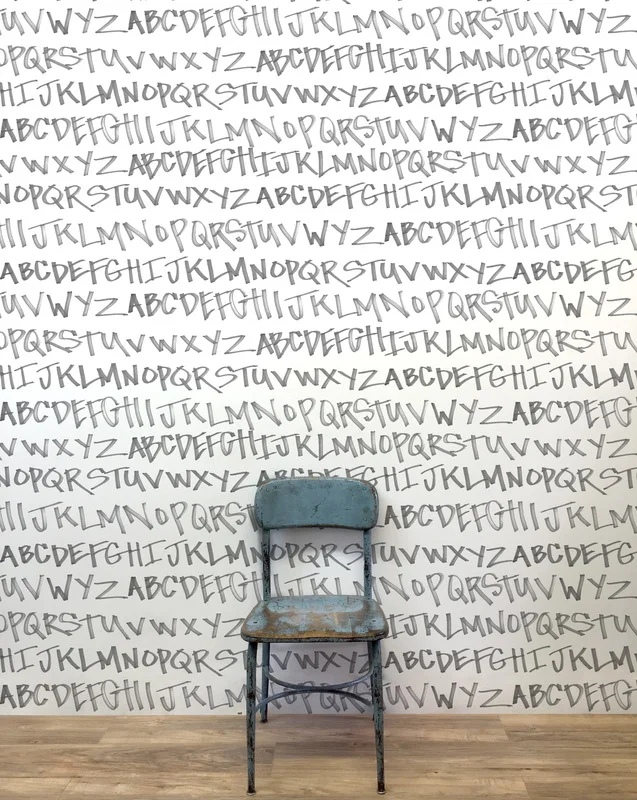 TUVWYZABCDEFGHIJKLMNOPQRSTUVWYZ
OPQRSTUVWXYZABCDEFGHIJKLMNOPQRSTU
HIJKLMNOPQRSTUVWXYZABCDEFGHIJKLM
ABCDEFGHIJKLMNOPQRSTUVWYZABCDEFG
VWXYZABCDEFGHIJKLMNOPQRSTUVWXYZ
NOPQRSTUVWXYZABCDEFGHIJKLMNOPQRST
HIJKLMNOPQRSTUVWYZABCDEFGHIJKLMN
ABCDEFGHIJKLMNOPQRSTUVWXYZABCDEFG
TUVWYZABCDEFGHIJKLMNOPQRSTUVWYZ
OPQRSTUVWXYZABCDEFGHIJKLMNOPQRSTU
HIJKLMNOPQRSTUVWXYZABCDEFGHIJKLM
ABCDEFGHIJKLMNOPQRSTUVWYZABCDEFG
VWXYZABCDEFGHIJKLMNOPQRSTUVWXYZ
NOPQRSTUVWXYZABCDEFGHIJKLMNOPQRST
HIJKLMNOPQRS ABCDEFGHIJKLMN
ABCDEFGHIJKLMNOPQRSTUVWXYZABCDEFG
TUVWYZABCDEFGHIJKLMNOPQRSTUVWYZ
OPQRSTUVWXYZ IJKLMNOPQRSTU
HIJKLMNOPQRSTUVWXYZABCDEFGHIJKLM
ABCDEFGHIJKLMNOPQRSTUVWYZABCDEFG